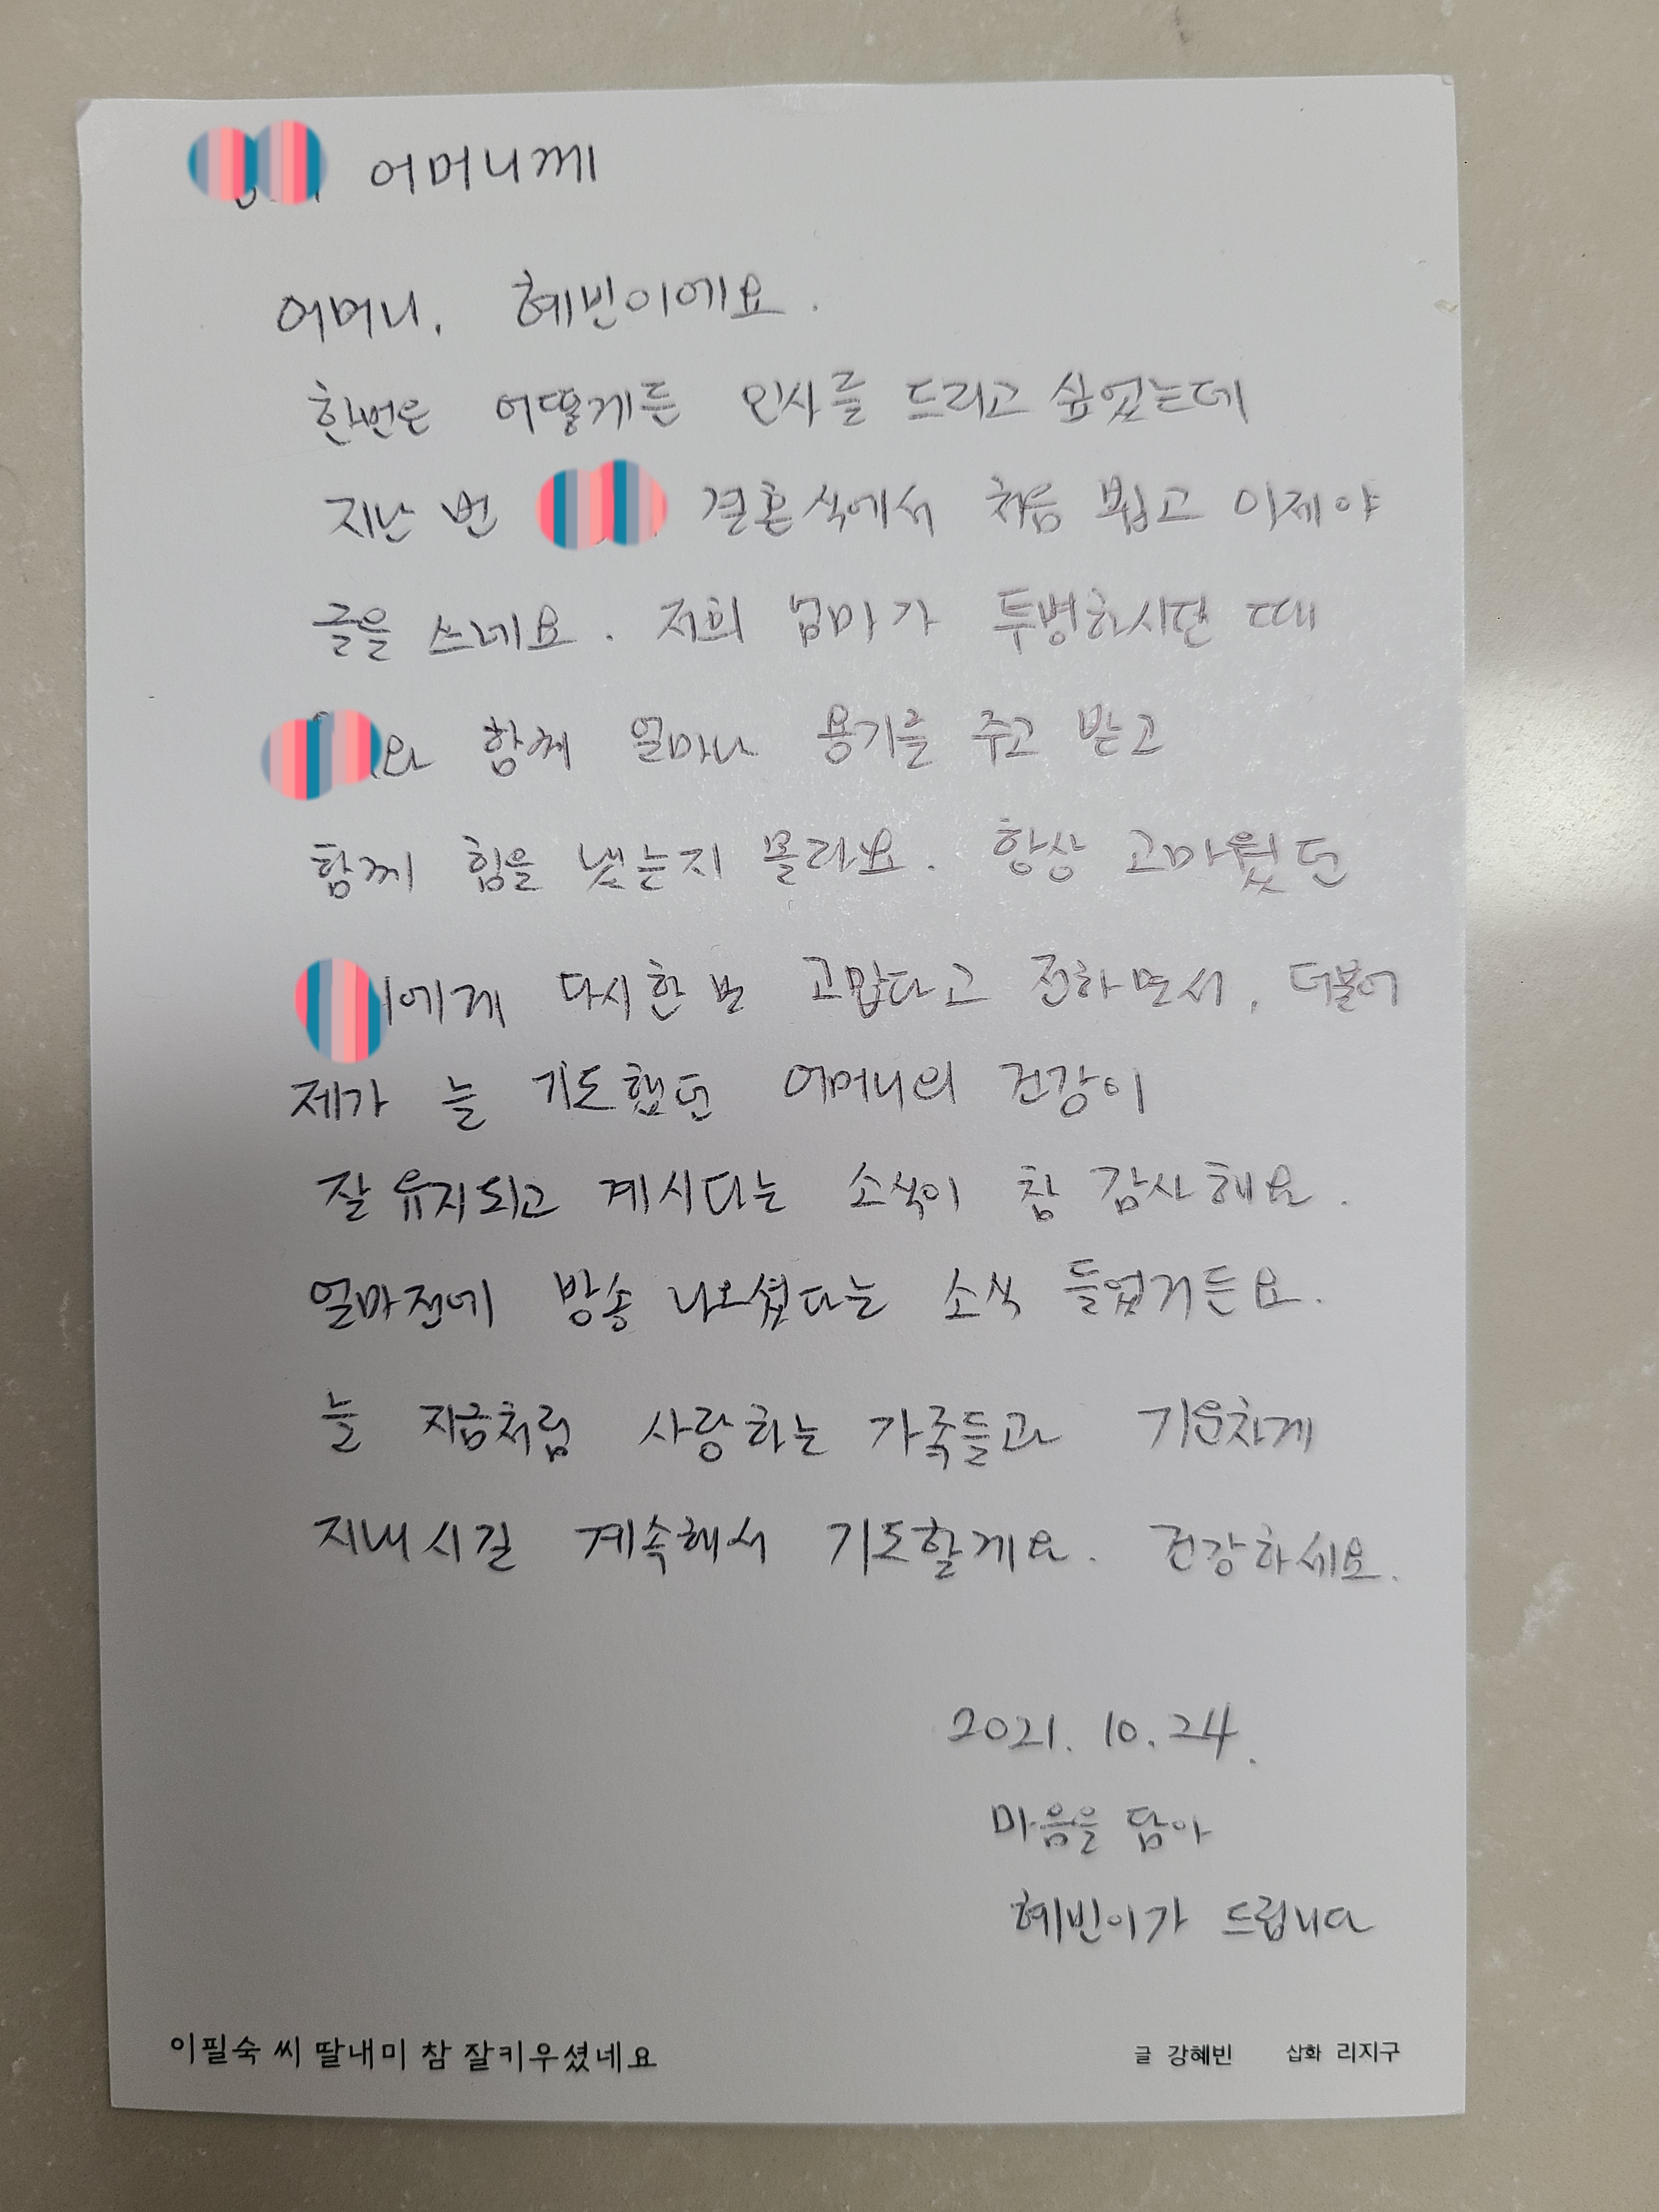 어머니께
어머니, 혜빈이에요.
한번은 어떻게든 인사를 드리고 싶었는데
지난 번 결혼식에서 처음 뵙고 이제야
글을 쓰네요. 저희 엄마가 투병하시던 때
와 함께 얼마나 용기를 주고 받고
함께 힘을 냈는지 몰라요. 항상 고마웠던
에게 다시한번 고맙다고 전하면서, 더불어
제가 늘 기도했던 어머니의 건강이
잘 유지되고 계시다는 소식이 참 감사해요.
얼마전에 방송 나오셨다는 소식 들었거든요.
늘 지금처럼 사랑하는 가족들과 기운차게
지내시길 계속해서 기도할게요. 건강하세요.
2021. 10. 24.
마음을 담아
혜빈이가 드립니다
이필숙 씨 딸내미 참 잘키우셨네요
글 강혜빈 삽화 리지구